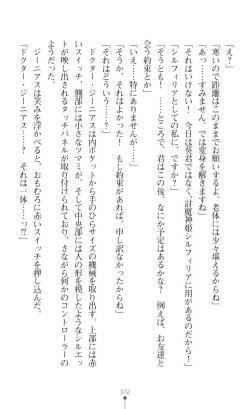 「え？」
「寒いので距離はこのままでお願いするよ。老体には少々堪えるからね」
「あっ……すみません。では変身を解きますね」
「それはいけない！　今日は葵君ではなく、討魔神姫シルフィリアに用があるのだから！」
「シルフィリアとしての私に、ですか？」
「そうとも！　……ところで、君はこの後、なにか予定はあるかな？　例えば、お友達と
会う約束とか？」
「いえ……特にありませんが……」
「そうか、それはよかった。もし約束があれば、申し訳なかったからね」
「それはどういう……？」
　ドクター・ジーニアスは内ポケットから手のひらサイズの機械を取り出す。上部には赤
いスイッチ、側部には小さなツマミが、そして中央部には人の形を模したようなシルエッ
トが映し出されるタッチパネルが取り付けられており、さながら何かのコントローラーの
ようだった。
「ドクター・ジーニアス……？　それは一体……っ⁉」
　ジーニアスは笑みを浮かべると、おもむろに赤いスイッチを押し込んだ。
372